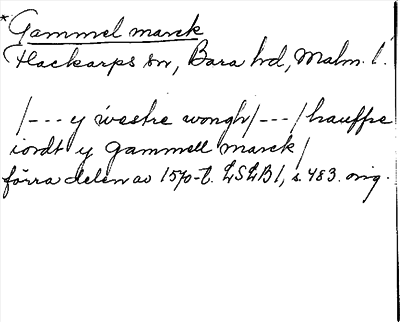 *Gammel marck
Flackarps sn, Bara hd, Malm. l.
/--- y westre wongh/---/hauffve
iordt y gammell marck/
förra delen av 1570-t. LSLB1, s. 483. orig.